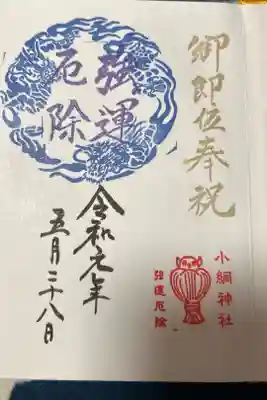 御即位奉祝
強運
厄除
令和元年
五月二十八日
小網神社
強運厄除